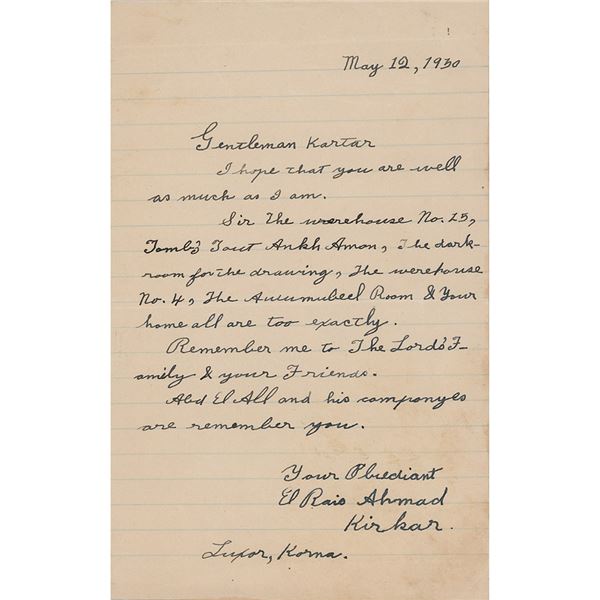 May 12, 1930
Gentleman Kartar
I hope that you are well
as much as I am.
Sir The werehouse No. 15,
Tomb's Tout Ankh Amon, The dark-
room for the drawing, The werehouse
No. 4, The Auumubeel Room & Your
home all are too exactly.
Remember me to The Lord's F-
amily & your Friends.
Abd El All and his companyes
are remember you.
Your Obediant
El Rais Ahmad
Kirkar.
Luxor, Korna.